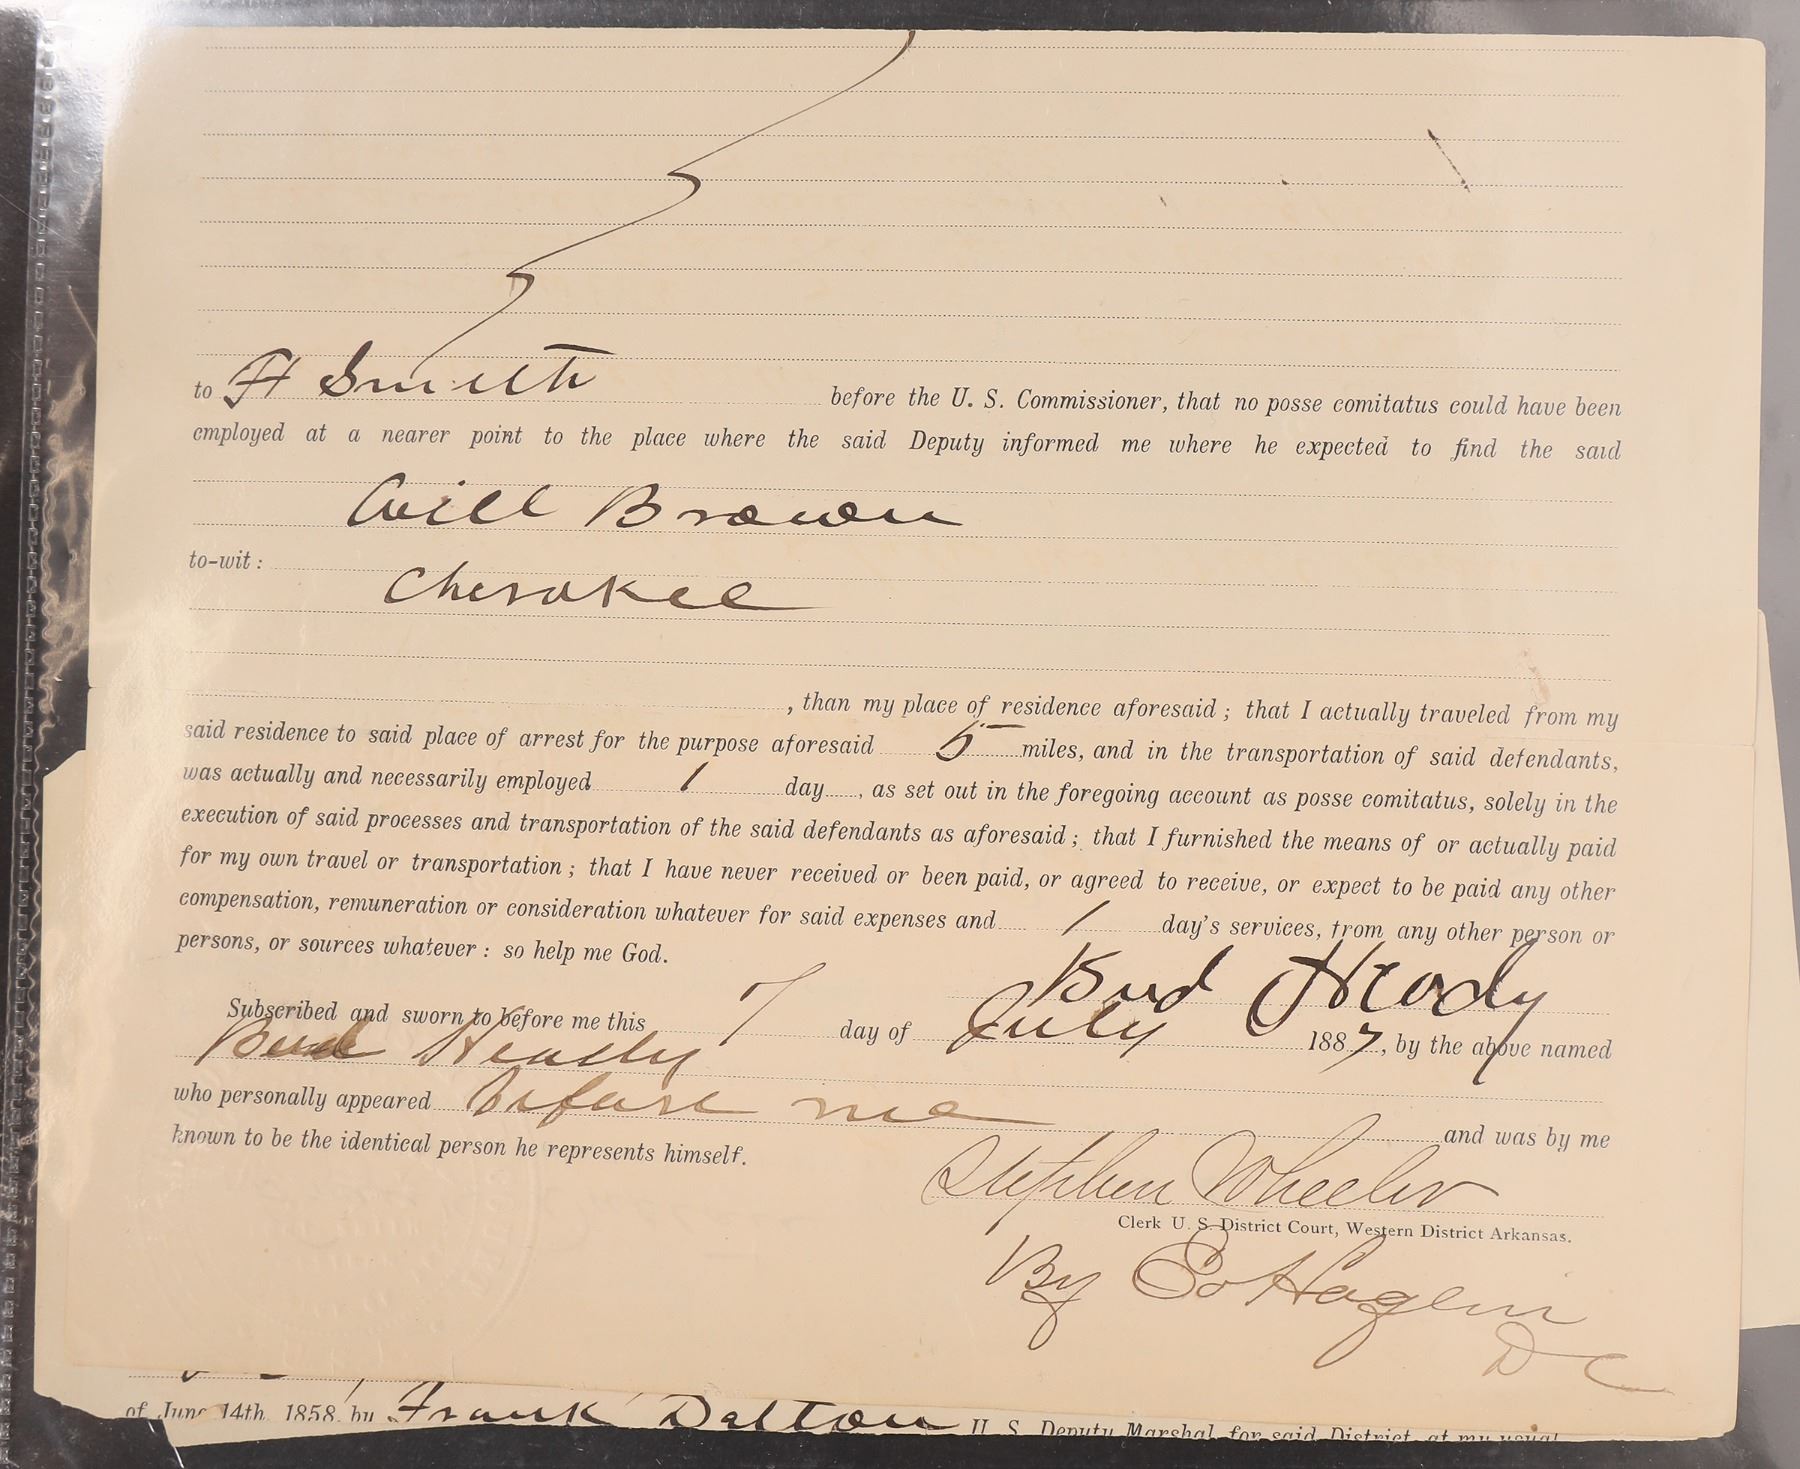 to Ft Smith before the U. S. Commissioner, that no posse comitatus could have been
employed at a nearer point to the place where the said Deputy informed me where he expected to find the said
Will Brown
to-wit:
Cherokee
, than my place of residence aforesaid; that I actually traveled from my
said residence to said place of arrest for the purpose aforesaid 5 miles, and in the transportation of said defendants,
was actually and necessarily employed 1 day , as set out in the foregoing account as posse comitatus, solely in the
execution of said processes and transportation of the said defendants as aforesaid; that I furnished the means of or actually paid
for my own travel or transportation; that I have never received or been paid, or agreed to receive, or expect to be paid any other
compensation, remuneration or consideration whatever for said expenses and 1 day's services, from any other person or
persons, or sources whatever: so help me God.
Bud Heady
Subscribed and sworn to before me this 7 day of July 1887, by the above named
Bud Heady
who personally appeared before me and was by me
known to be the identical person he represents himself.
Stephen Wheeler
Clerk U. S. District Court, Western District Arkansas.
By
D C
of June 14th, 1858, by Frank Dalton U. S. Deputy Marshal for said District, at my usual